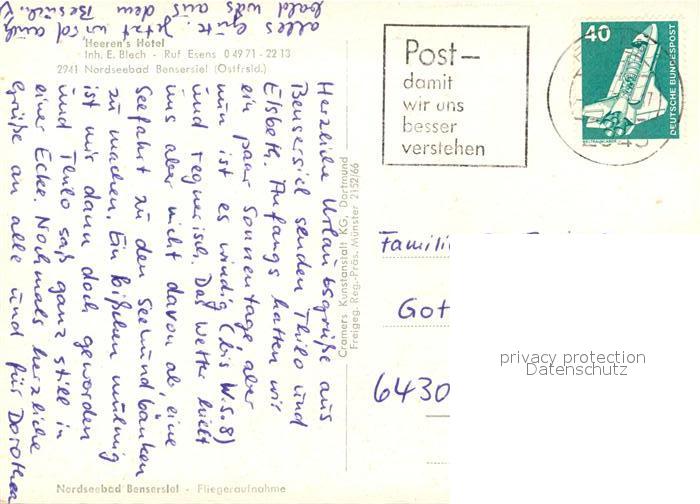 'Heeren's Hotel
Inh. E. Blech - Ruf Esens 0 49 71 - 22 13
2941 Nordseebad Bensersiel (Ostfrsld.)
Herzliche Urlaubsgrüße aus
Bensersiel senden Thilo und
Elsbeth. Anfangs hatten wir
ein paar Sonnentage, aber
nun ist es windig (bis W.S.8)
und regnerisch. Das Wetter hielt
uns aber nicht davon ab, eine
Seefahrt zu den Seehundbänken
zu machen. Ein bißchen mulmig
ist mir dann doch geworden
und Thilo saß ganz still in
einer Ecke. Nochmals herzliche
Grüße an alle und für Dorothea
alles Gute. Jetzt wird auch
bald was aus dem Besuch.
Cramers Kunstanstalt KG, Dortmund
Freigeg. Reg.-Präs. Münster 2152/66
Nordseebad Bensersiel - Fliegeraufnahme
Post—
damit
wir uns
besser
verstehen
40
DEUTSCHE BUNDESPOST
Famili
Got
6430
privacy protection
Datenschutz